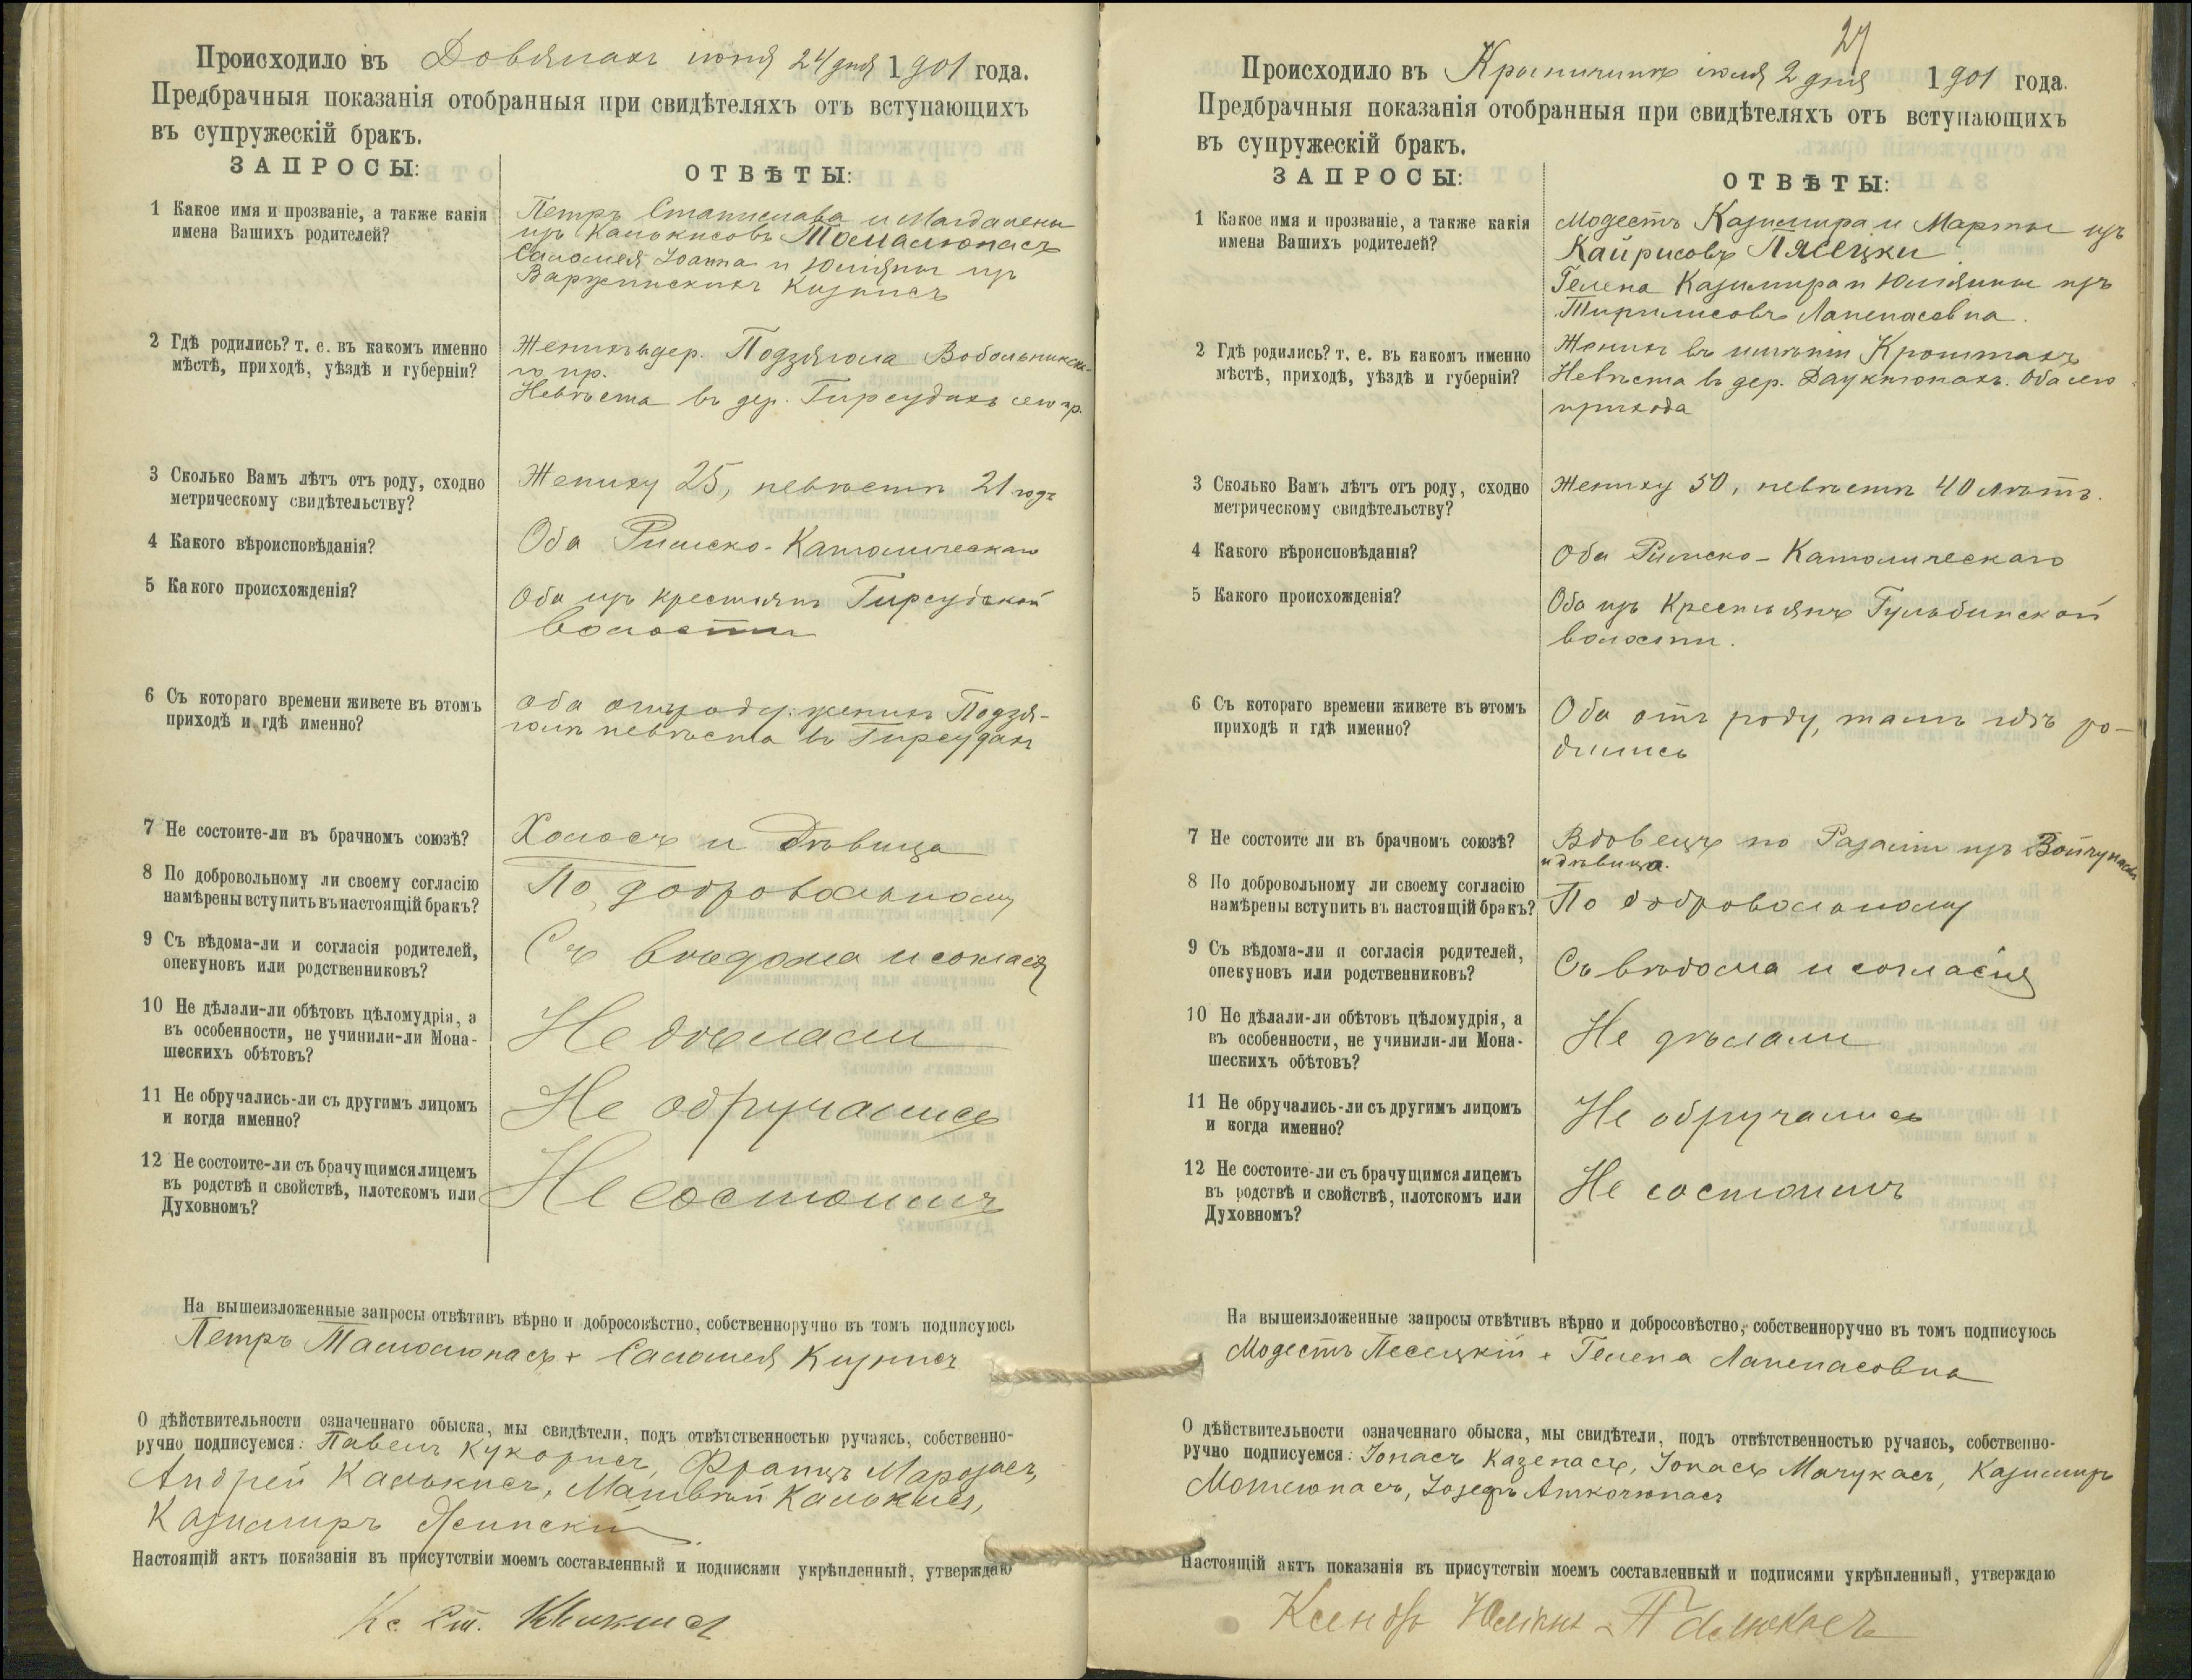 Происходило въ Довянахъ іюня 24 дня 1901 года.
Предбрачныя показанія отобранныя при свидѣтеляхъ отъ вступающихъ
въ супружескій бракъ.
ЗАПРОСЫ:
ОТВѢТЫ:
1 Какое имя и прозваніе, а также какія
имена Вашихъ родителей?
Петръ Станислава и Магдалены
изъ Калькисовъ Тамалюнасъ
Саломея Іоанна и Юліяны изъ
Варжинскихъ Кизнисъ
2 Гдѣ родились? т. е. въ какомъ именно
мѣстѣ, приходѣ, уѣздѣ и губерніи?
Женихъ дер. Подзягола Вобольникска-
го пр.
Невѣста въ дер. Гирсудахъ сего пр.
3 Сколько Вамъ лѣтъ отъ роду, сходно
метрическому свидѣтельству?
Жениху 25, невѣстѣ 21 годъ
4 Какого вѣроисповѣданія?
Оба Римско-Католическаго
5 Какого происхожденія?
Оба изъ крестьянъ Гирсудской
волости
6 Съ котораго времени живете въ этомъ
приходѣ и гдѣ именно?
Оба отъ роду: женихъ Подзя-
голѣ невѣста въ Гирсудахъ
7 Не состоите-ли въ брачномъ союзѣ?
Холосъ и дѣвица
8 По добровольному ли своему согласію
намѣрены вступить въ настоящій бракъ?
По добровольному
9 Съ вѣдома-ли и согласія родителей,
опекуновъ или родственниковъ?
Съ вѣдома и согласія
10 Не дѣлали-ли обѣтовъ цѣломудрія, а
въ особенности, не учинили-ли Мона-
шескихъ обѣтовъ?
Не дѣлали
11 Не обручались-ли съ другимъ лицомъ
и когда именно?
Не обручались
12 Не состоите-ли съ брачущимся лицемъ
въ родствѣ и свойствѣ, плотскомъ или
Духовномъ?
Не состоимъ
На вышеизложенные запросы отвѣтивъ вѣрно и добросовѣстно, собственноручно въ томъ подписуюсь
Петръ Тамолюнасъ + Саломея Кизнисъ
О дѣйствительности означеннаго обыска, мы свидѣтели, подъ отвѣтственностью ручаясь, собственно-
ручно подписуемся: Павелъ Кукорисъ, Францъ Марозасъ,
Андрей Калькисъ, Матвѣй Калькисъ,
Казимиръ Ясински
Настоящій актъ показанія въ присутствіи моемъ составленный и подписями укрѣпленный, утверждаю
Кс.
27
Происходило въ іюля 2 дня 1901 года.
Предбрачныя показанія отобранныя при свидѣтеляхъ отъ вступающихъ
въ супружескій бракъ.
ЗАПРОСЫ:
ОТВѢТЫ:
1 Какое имя и прозваніе, а также какія
имена Вашихъ родителей?
Модестъ Казимира и Марты изъ
Кайрисовъ Пясецки
Гелена Казимира и Юліянны изъ
Тирилисовъ Лапенасовна.
2 Гдѣ родились? т. е. въ какомъ именно
мѣстѣ, приходѣ, уѣздѣ и губерніи?
Женихъ въ имѣніи Кроштахъ
Невѣста въ дер. Дауктюнахъ. Оба сего
прихода
3 Сколько Вамъ лѣтъ отъ роду, сходно
метрическому свидѣтельству?
Жениху 50, невѣстѣ 40 лѣтъ.
4 Какого вѣроисповѣданія?
Оба Римско-Католическаго
5 Какого происхожденія?
Оба изъ Крестьянъ Гульбинской
волости.
6 Съ котораго времени живете въ этомъ
приходѣ и гдѣ именно?
Оба отъ роду, тамъ гдѣ ро-
дились
7 Не состоите ли въ брачномъ союзѣ?
Вдовецъ по Розаліи изъ Войчунасовъ
и дѣвица.
8 По добровольному ли своему согласію
намѣрены вступить въ настоящій бракъ?
По добровольному
9 Съ вѣдома-ли и согласія родителей,
опекуновъ или родственниковъ?
Съ вѣдома и согласія
10 Не дѣлали-ли обѣтовъ цѣломудрія, а
въ особенности, не учинили-ли Мона-
шескихъ обѣтовъ?
Не дѣлали
11 Не обручались-ли съ другимъ лицомъ
и когда именно?
Не обручались
12 Не состоите-ли съ брачущимся лицемъ
въ родствѣ и свойствѣ, плотскомъ или
Духовномъ?
Не состоимъ
На вышеизложенные запросы отвѣтивъ вѣрно и добросовѣстно, собственноручно въ томъ подписуюсь
Модестъ Песецкій + Гелена Лапенасовна
О дѣйствительности означеннаго обыска, мы свидѣтели, подъ отвѣтственностью ручаясь, собственно-
ручно подписуемся: Іонасъ Казенасъ, Іонасъ Мачукасъ, Казимиръ
Мотеюнасъ, Іозефъ Аткочюнасъ
Настоящій актъ показанія въ присутствіи моемъ составленный и подписями укрѣпленный, утверждаю
Ксендзъ Юліянъ Палюкасъ